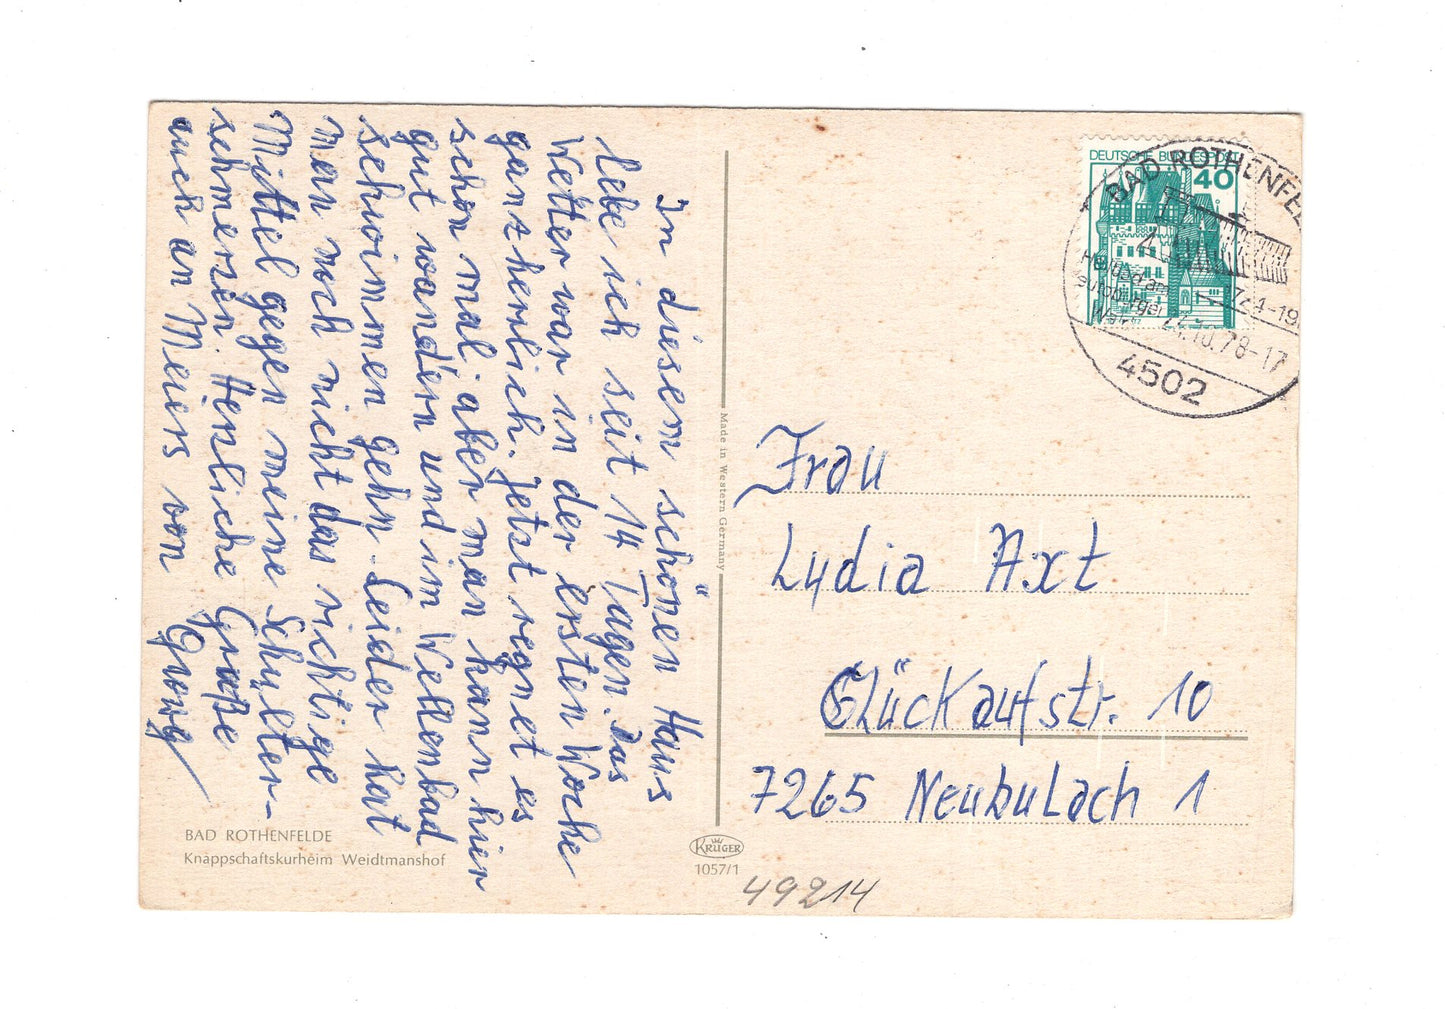 In diesem schönen Haus
lebe ich seit 14 Tagen. Das
Wetter war in der ersten Woche
ganz herrlich. Jetzt regnet es
schon mal, aber man kann hier
gut wandern und im Wellenbad
schwimmen gehn. Leider hat
man noch nicht das richtige
Mittel gegen meine Schulter-
schmerzen. Herzliche Grüße
auch an Meiers von
BAD ROTHENFELDE
Knappschaftskurheim Weidtmanshof
Made in Western Germany
KRÜGER
1057/1
DEUTSCHE BUNDESPOST
40
BAD ROTHENFEL
Heilbad am
Teutoburger
Wald
724-19
24.10.78-17
4502
Frau
Lydia Axt
Glückaufstr. 10
7265 Neubulach 1
49214